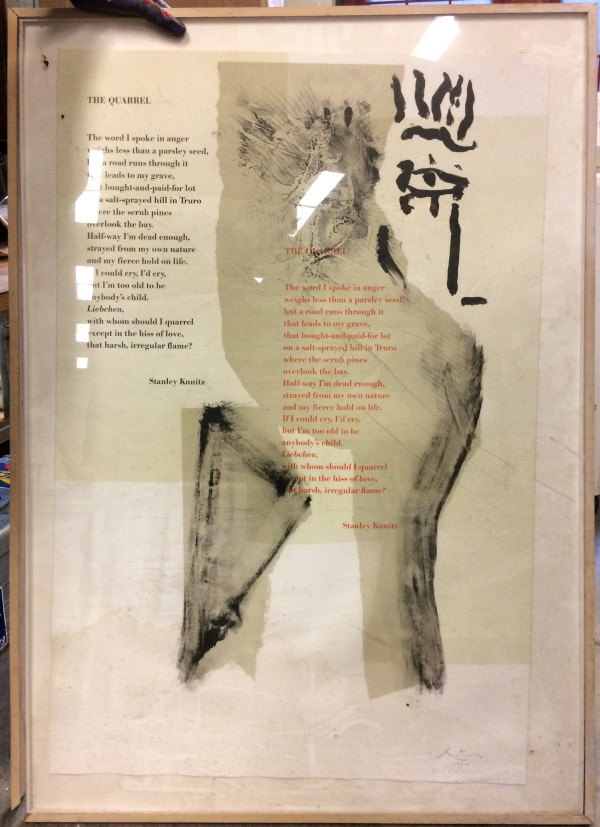 THE QUARREL
The word I spoke in anger
weighs less than a parsley seed,
a road runs through it
leads to my grave,
that bought-and-paid-for lot
a salt-sprayed hill in Truro
where the scrub pines
overlook the bay.
Half-way I'm dead enough,
strayed from my own nature
and my fierce hold on life.
I could cry, I'd cry,
but I'm too old to be
anybody's child.
Liebchen,
with whom should I quarrel
except in the hiss of love,
that harsh, irregular flame?
Stanley Kunitz
THE QUARREL
The word I spoke in anger
weighs less than a parsley seed,
but a road runs through it
that leads to my grave,
that bought-and-paid-for lot
on a salt-sprayed hill in Truro
where the scrub pines
overlook the bay.
Half-way I'm dead enough,
strayed from my own nature
and my fierce hold on life.
If I could cry, I'd cry,
but I'm too old to be
anybody's child.
Liebchen,
with whom should I quarrel
except in the hiss of love,
that harsh, irregular flame?
Stanley Kunitz